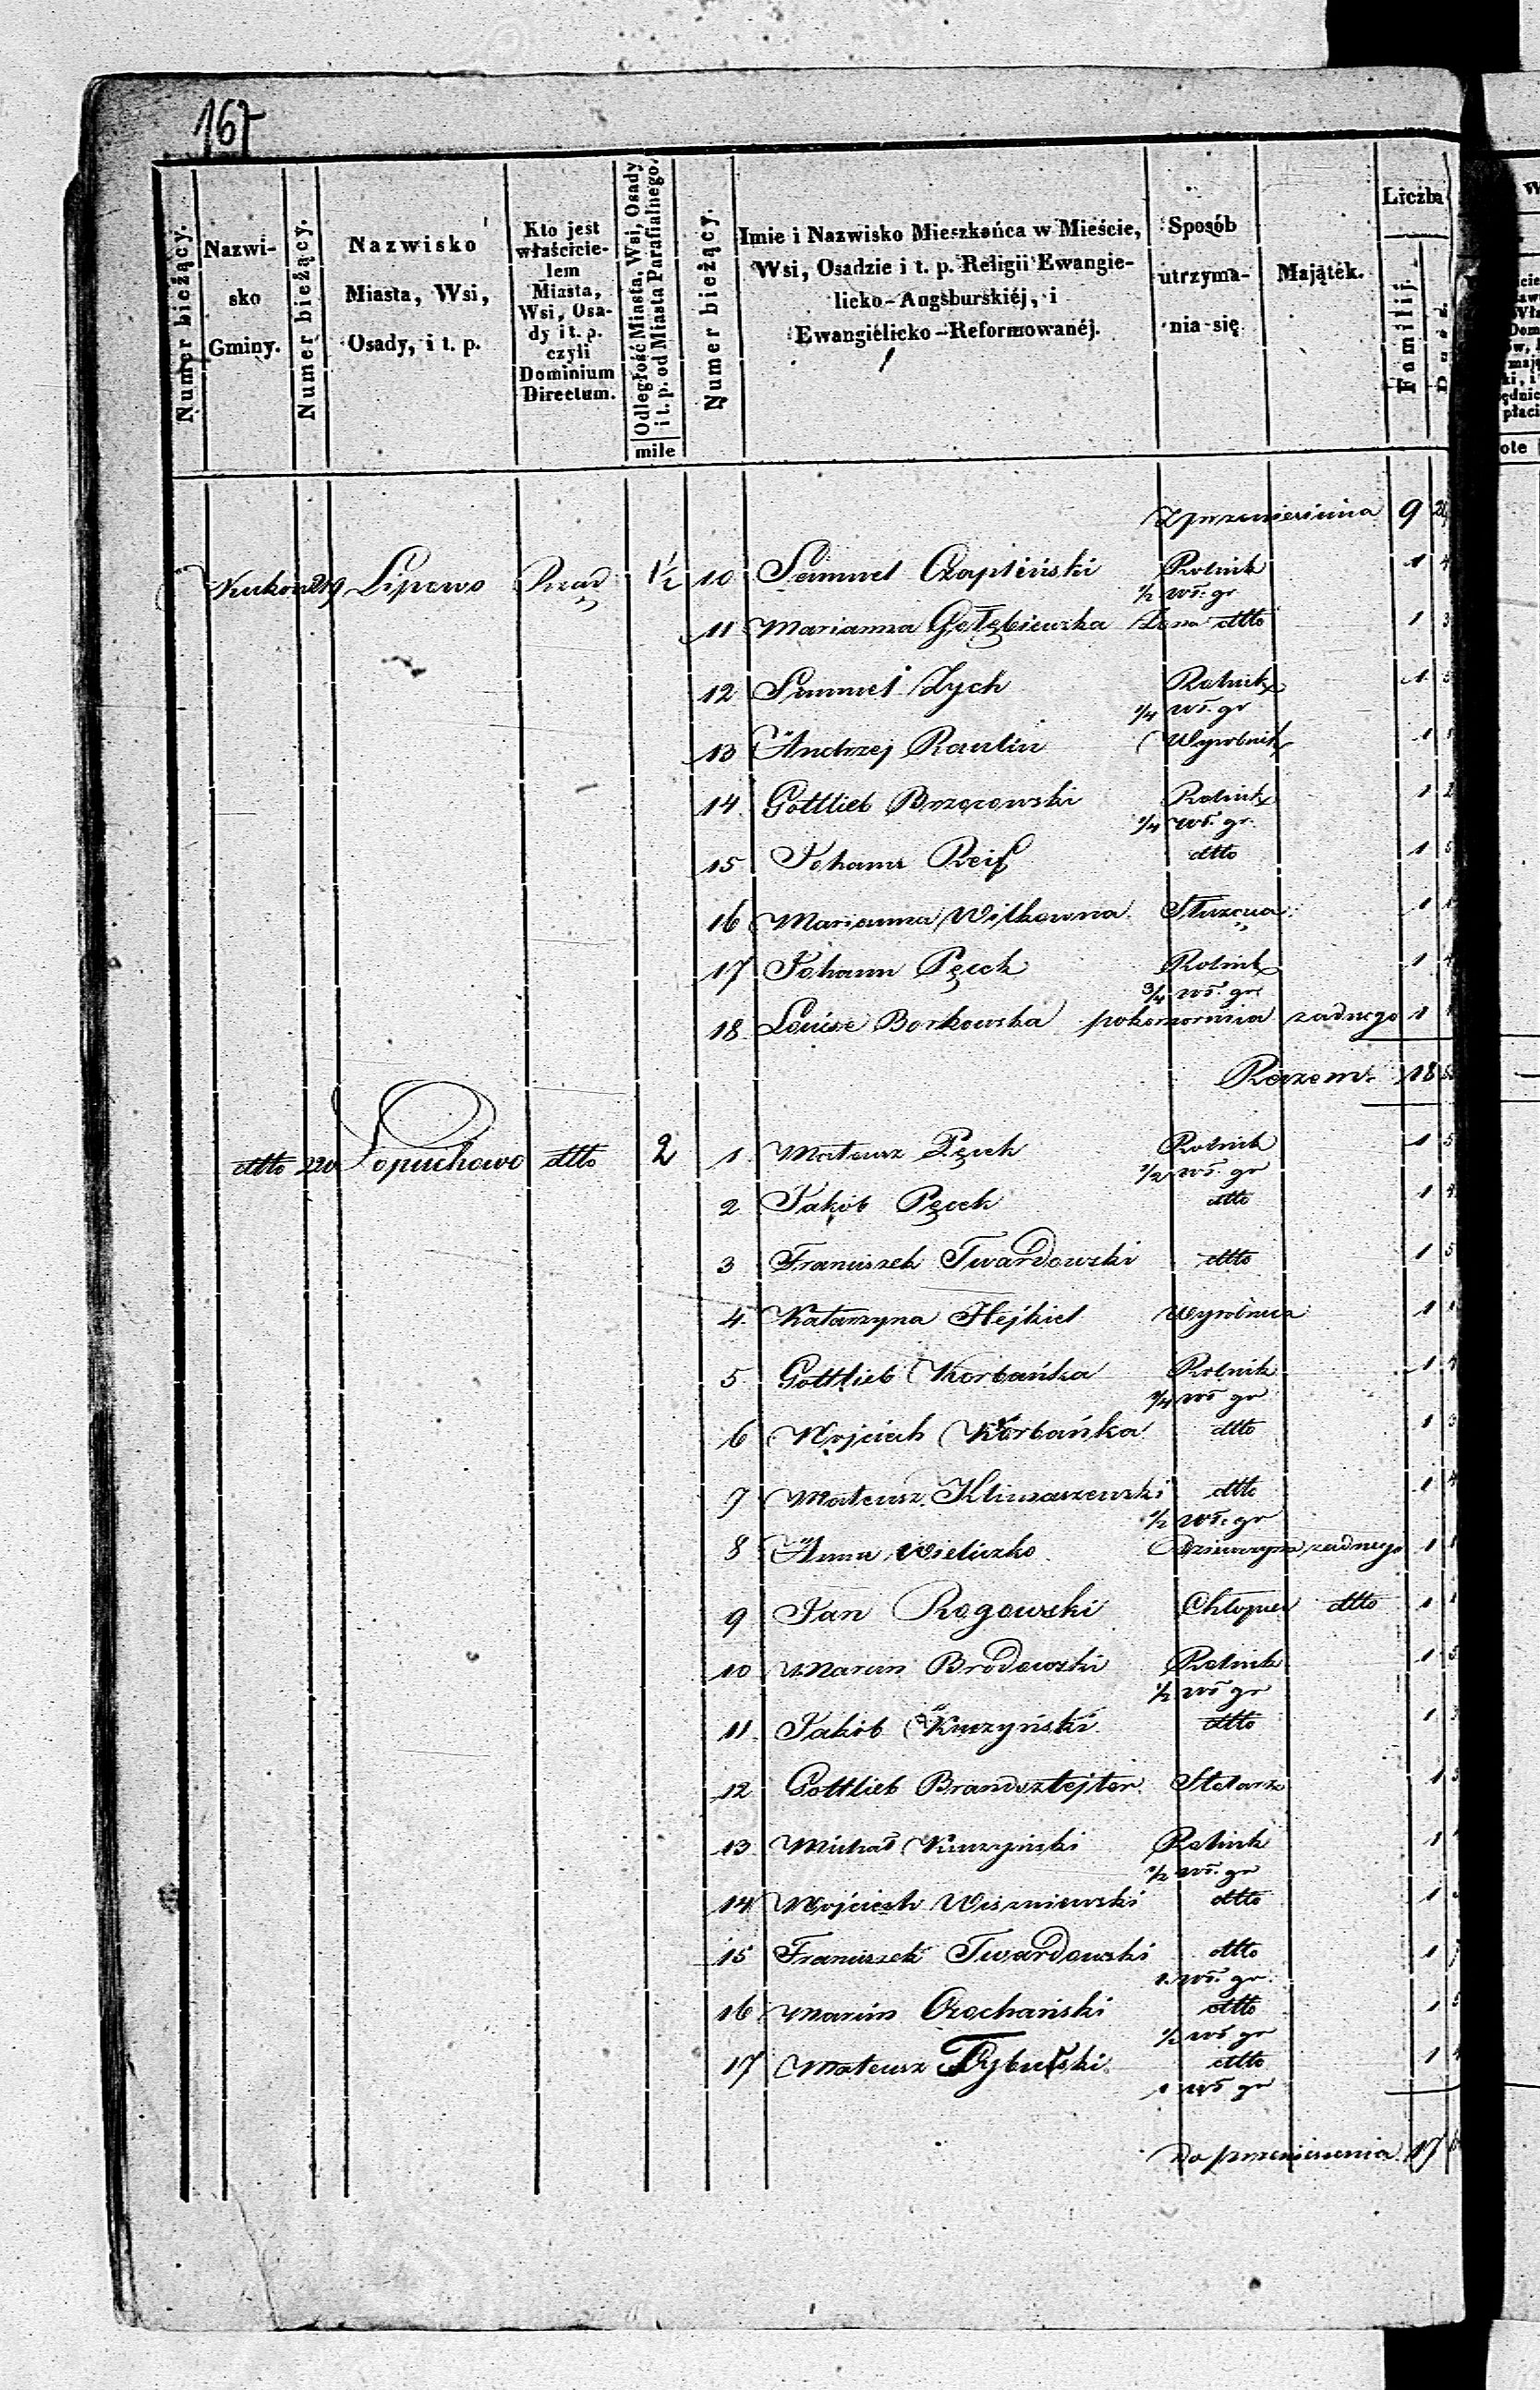 167
Numer bieżący.
Nazwi-
sko
Gminy.
Numer bieżący.
Nazwisko
Miasta, Wsi,
Osady, i t. p.
Kto jest
właścicie-
lem
Miasta,
Wsi, Osa-
dy i t. p.
czyli
Dominium
Directum.
Odległość Miasta, Wsi, Osady
i t. p. od Miasta Parafialnego.
mile
Numer bieżący.
Imie i Nazwisko Mieszkańca w Mieście,
Wsi, Osadzie i t. p. Religii Ewangie-
licko-Augsburskiéj, i
Ewangiélicko-Reformowanéj.
Sposób
utrzyma-
nia się
Majątek.
Liczba
Familij.
Z przeniesienia 9
219 Lipowo Rząd 1½ 10 Samuel Czapliński Rolnik 1 4
½ wł. gr
11 Marianna Gołębiewska Żona dtto 1 3
12 Samuel Zych Rolnik 1
¼ wł. gr
13 Andrzej Rawlin Wyrobnik 1
14 Gottlieb Brzozowski Rolnik 1 2
¼ wł. gr.
15 Johann Reif dtto 1
16 Marianna Witkowna Służąca 1
17 Johann Pęcek Rolnik 1 4
¾ wł. gr
18 Louise Borkowska pokomornia żadnego 1
Razem 18
dtto 220 Łopuchowo dtto 2 1 Mateusz Pęcek Rolnik 1 5
½ wł. gr
2 Jakób Pęcek dtto 1 4
3 Franciszek Twardowski dtto 1 5
4 Katarzyna Hejkiel Wyrobnica 1 1
5 Gottlieb Korbańka Rolnik 1 4
¾ wł gr
6 Wojciech Korbańka dtto 1 3
7 Mateusz Klimaszewski dtto 1 4
½ wł. gr
8 Anna Wieliczko Dziewczyna żadnego 1 1
9 Jan Rogowski Chłopiec dtto 1 1
10 Marcin Brodowski Rolnik 1 5
½ wł gr
11 Jakób Kuczyński dtto 1 3
12 Gottlieb Brandsztejter Stolarz 1 3
13 Michał Kuczyński Rolnik 1
½ wł. gr
14 Wojciech Wiszniewski dtto 1
15 Franciszek Twardowski dtto 1
1 wł. gr.
16 Marcin Czochański dtto 1
½ wł gr
17 Mateusz Trybulski dtto 1
1 wł gr
Do przeniesienia 17